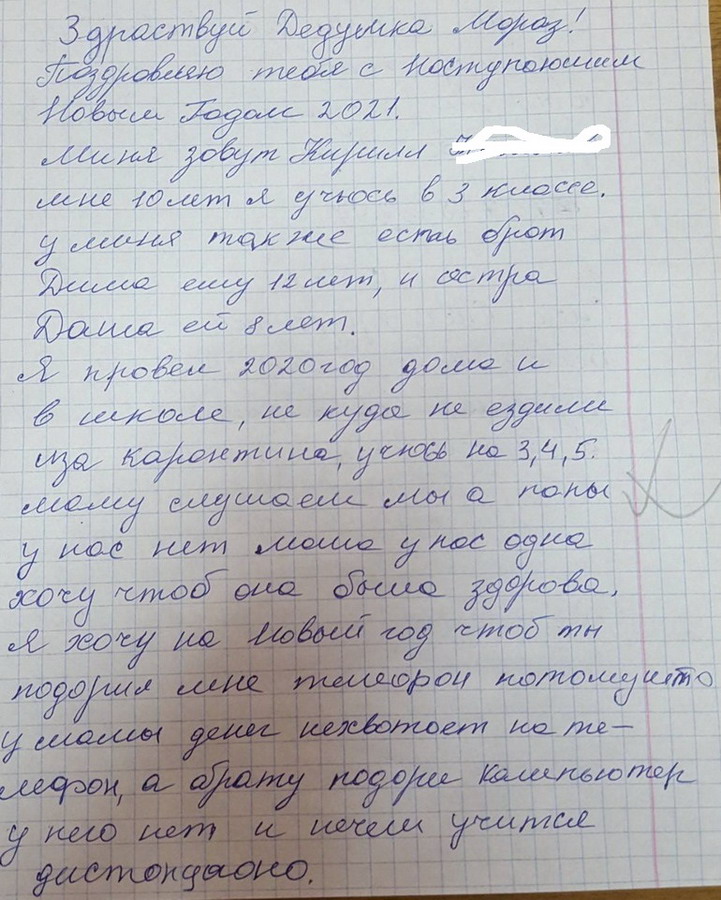 Здраствуй Дедушка Мороз!
Поздровляю тебя с Ноступоюшим
Новым Годом 2021.
Миня зовут Кирилл
мне 10 лет я учюсь в 3 классе.
у миня также есть брот
Дима ему 12 лет, и состра
Даша ей 8 лет.
Я провел 2020 год дома и
в школе, не куда не ездили
иза коронтина, учюсь на 3,4,5.
маму слушаем мы а попы
у нас нет мама у нас одна
хочу чтоб она была здорова.
Я хочу на Новый год чтоб ты
подорил мне телефон потомушто
у мамы денег нехвотоет на те-
лефон, а брату подори компьютер
у него нет и нечем учится
дистонцаоно.